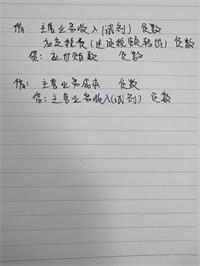 借 主营业务收入(试剂) 负数
应交税费(进项税额转出) 负数
贷: 应付账款 负数
借: 主营业务成本 负数
贷: 主营业务收入(试剂) 负数